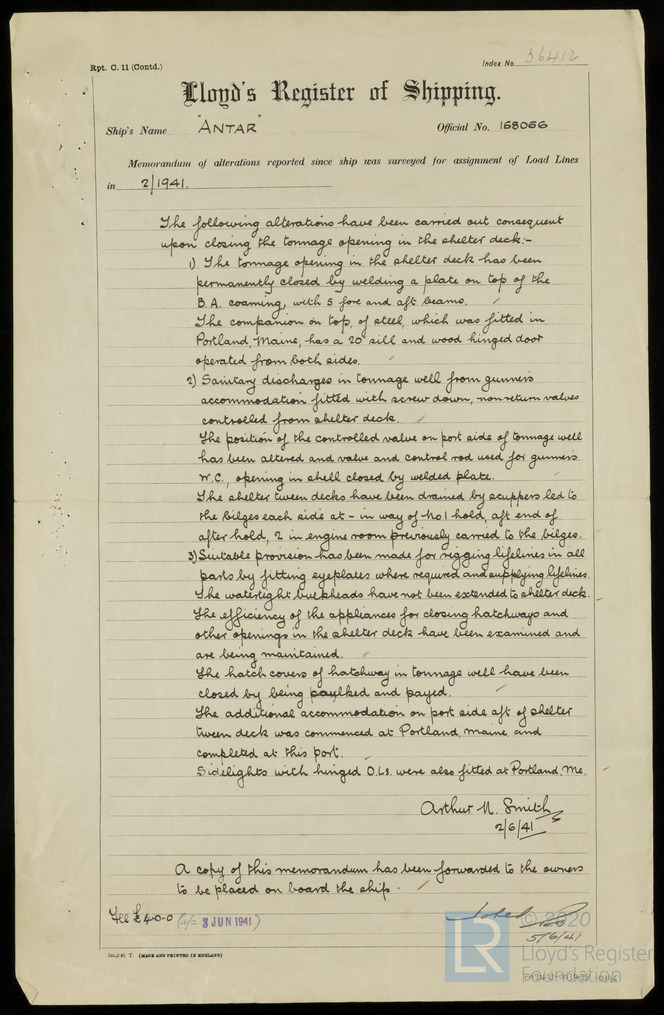 Rpt. C. 11 (Contd.)
Index No. 36412
Lloyd's Register of Shipping.
Ship's Name "ANTAR" Official No. 168066
Memorandum of alterations reported since ship was surveyed for assignment of Load Lines
in 2/1941.
The following alterations have been carried out consequent
upon closing the tonnage opening in the shelter deck:-
1) The tonnage opening in the shelter deck has been
permanently closed by welding a plate on top of the
B.A. coaming, with 5 fore and aft beams.
The companion on top, of steel, which was fitted in
Portland, Maine, has a 20" sill and wood hinged door
operated from both sides.
2) Sanitary discharges in tonnage well from gunners
accommodation fitted with screw down, non return valves
controlled from shelter deck.
The position of the controlled valve on port side of tonnage well
has been altered and valve and control rod used for gunners
W.C., opening in shell closed by welded plate.
The shelter tween decks have been drained by scuppers led to
the bilges each side at - in way of No 1 hold, aft end of
after hold, 2 in engine room previously carried to the bilges.
3) Suitable provision has been made for rigging lifelines in all
parts by fitting eyeplates where required and supplying lifelines.
The watertight bulkheads have not been extended to shelter deck.
The efficiency of the appliances for closing hatchways and
other openings in the shelter deck have been examined and
are being maintained.
The hatch covers of hatchway in tonnage well have been
closed by being caulked and payed.
The additional accommodation on port side aft of shelter
tween deck was commenced at Portland, Maine and
completed at this port.
Sidelights with hinged D.Ls. were also fitted at Portland, Me.
Arthur N. Smith
2/6/41
A copy of this memorandum has been forwarded to the owners
to be placed on board the ship.
Fee £40-0 3 JUN 1941
5/6/41
(MADE AND PRINTED IN ENGLAND)
LR © 2020
Lloyd's Register
Foundation